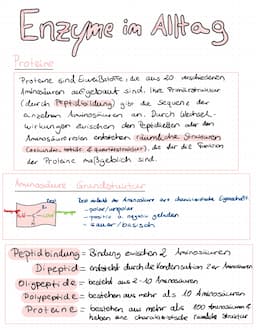 Enzyme im Alltag
Proteine
Proteine sind Eiweißstoffe, die aus 20 verschiedenen
Aminosäuren aufgebaut sind. Ihre Primärstruktur
(durch Peptidbildung) gibt die Sequenz der
einzelnen Aminosäuren an. Durch Wechsel-
wirkungen zwischen den Peptidketten oder den
Aminosäureresten entstehen räumliche Strukturen
(sekundär, tertiär & quartärstruktur), die für die Funktion
der Proteine maßgeblich sind.
Aminosäure Grundstruktur
Rest verleiht der Aminosäure die charakteristische Eigenschaft
- polar/unpolar
- positiv o. negativ geladen
- sauer/basisch
Peptidbindung = Bindung zwischen 2 Aminosäuren
Dipeptid = entsteht durch die Kondensation 2er Aminosäuren
Oligopeptide = besteht aus 2-10 Aminosäuren
Polypeptide = bestehen aus mehr als 10 Aminosäuren
Proteine = bestehen aus mehr als 100 Aminosäuren &
haben eine charakteristische räumliche Struktur